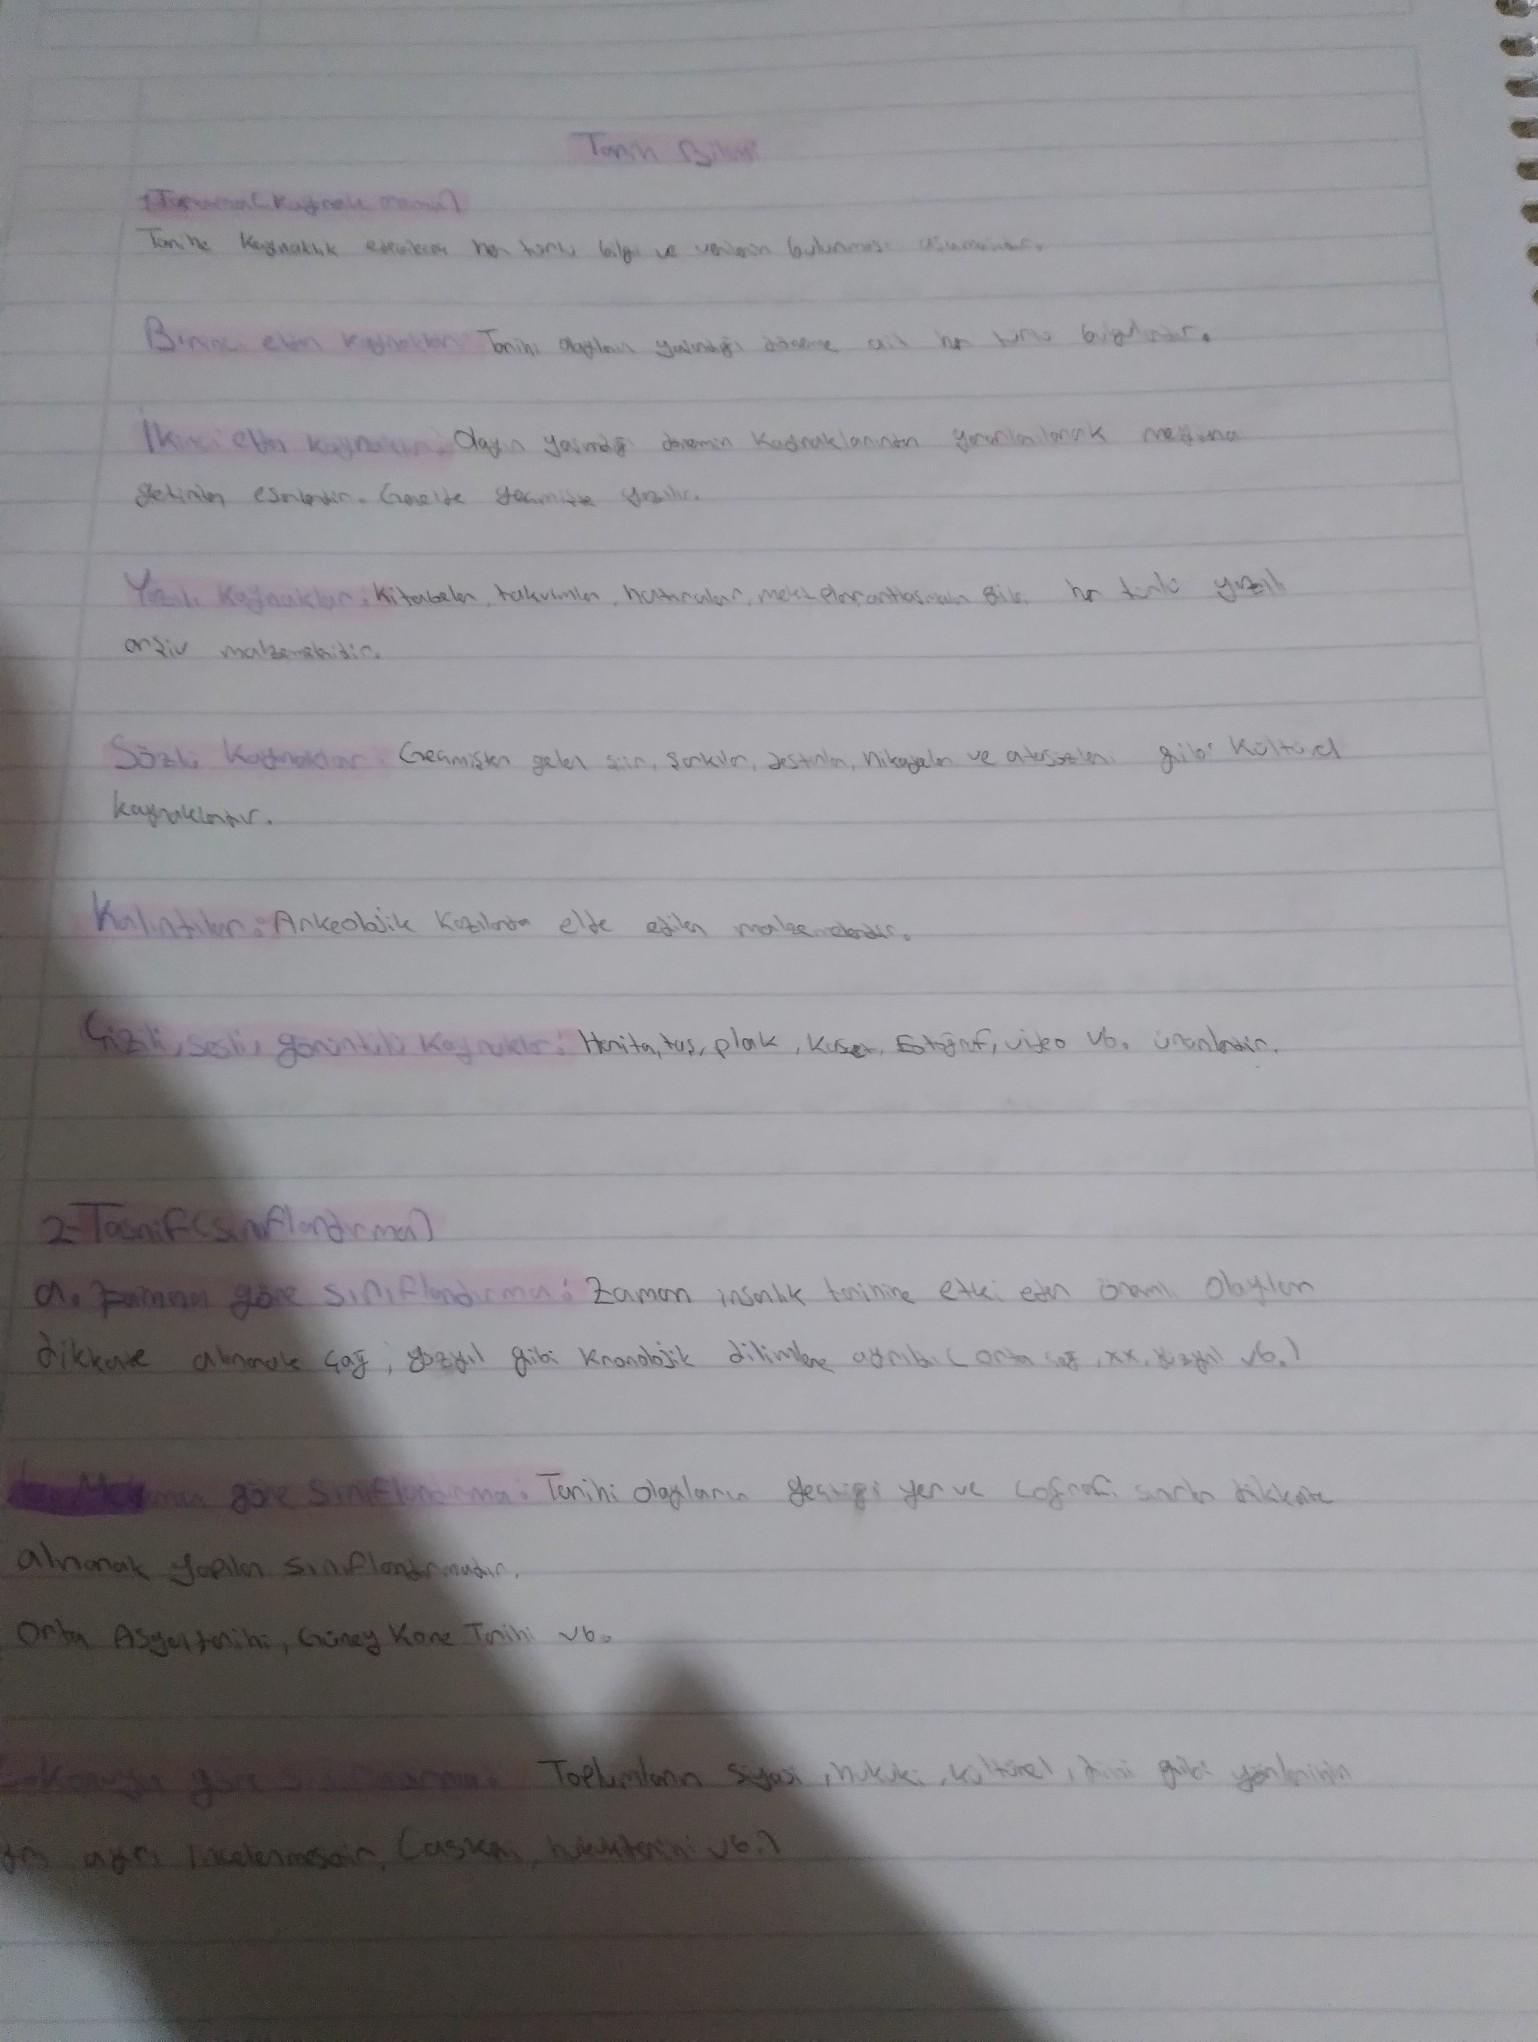 Tarih Bilimi
1-Tarama(Kaynak arama)
Tarihe kaynaklık edebilecek her türlü bilgi ve verilerin bulunması aşamasıdır.
Birinci elden kaynaklar: Tarihi olayların yaşandığı döneme ait her türlü bulgulardır.
İkinci elden kaynaklar: Olayın yaşandığı dönemin kaynaklarından yararlanılarak meydana
getirilen eserlerdir. Genelde geçmişte yazılır.
Yazılı Kaynaklar: Kitabeler, takvimler, hatıralar, mektuplar, antlaşmalar gibi her türlü yazılı
arşiv malzemesidir.
Sözlü Kaynaklar: Geçmişten gelen şiir, şarkılar, destanlar, hikayeler ve atasözleri gibi kültürel
kaynaklardır.
Kalıntılar: Arkeolojik kazılarda elde edilen malzemelerdir.
Çizili, sesli, görüntülü Kaynaklar: Harita, taş, plak, kaset, fotoğraf, video vb. ürünlerdir.
2-Tasnif(sınıflandırma)
a. Zamana göre sınıflandırma: Zaman insanlık tarihine etki eden önemli olayları
dikkate alınarak çağ, yüzyıl gibi kronolojik dilimlere ayrılır. (orta çağ, xx. yüzyıl vb.)
Mekana göre Sınıflandırma: Tarihi olayların geçtiği yer ve coğrafi sınırları dikkate
alınarak yapılan sınıflandırmadır.
Orta Asya tarihi, Güney Kore Tarihi vb.
Konuya göre sınıflandırma: Toplumların siyasi, hukuki, kültürel, dini gibi yönlerinin
ayrı incelenmesidir. (askeri, hukuk tarihi vb.)